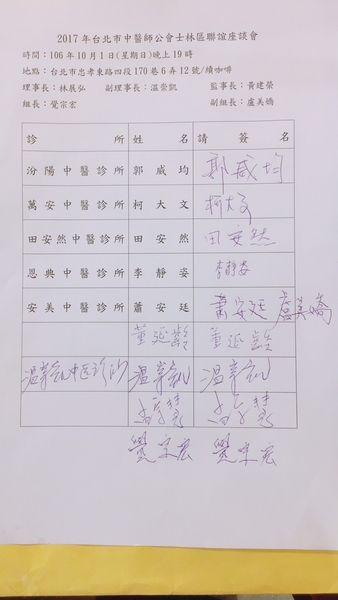 2017年台北市中醫師公會士林區聯誼座談會
時間：106年10月1日(星期日)晚上19時
地點：台北市忠孝東路四段170巷6弄12號/續咖啡
理事長：林展弘 副理事長：溫崇凱 監事長：黃建榮
組長：覺宗宏 副組長：盧美嬌
診所 姓名 請簽名
汾陽中醫診所 郭威均 郭威均
萬安中醫診所 柯大文 柯大文
田安然中醫診所 田安然 田安然
恩典中醫診所 李靜姿 李靜姿
安美中醫診所 蕭安廷 蕭安廷 盧美嬌
董延齡 董延齡
溫崇凱中医診所 溫崇凱 溫崇凱
覺宗宏 覺宗宏